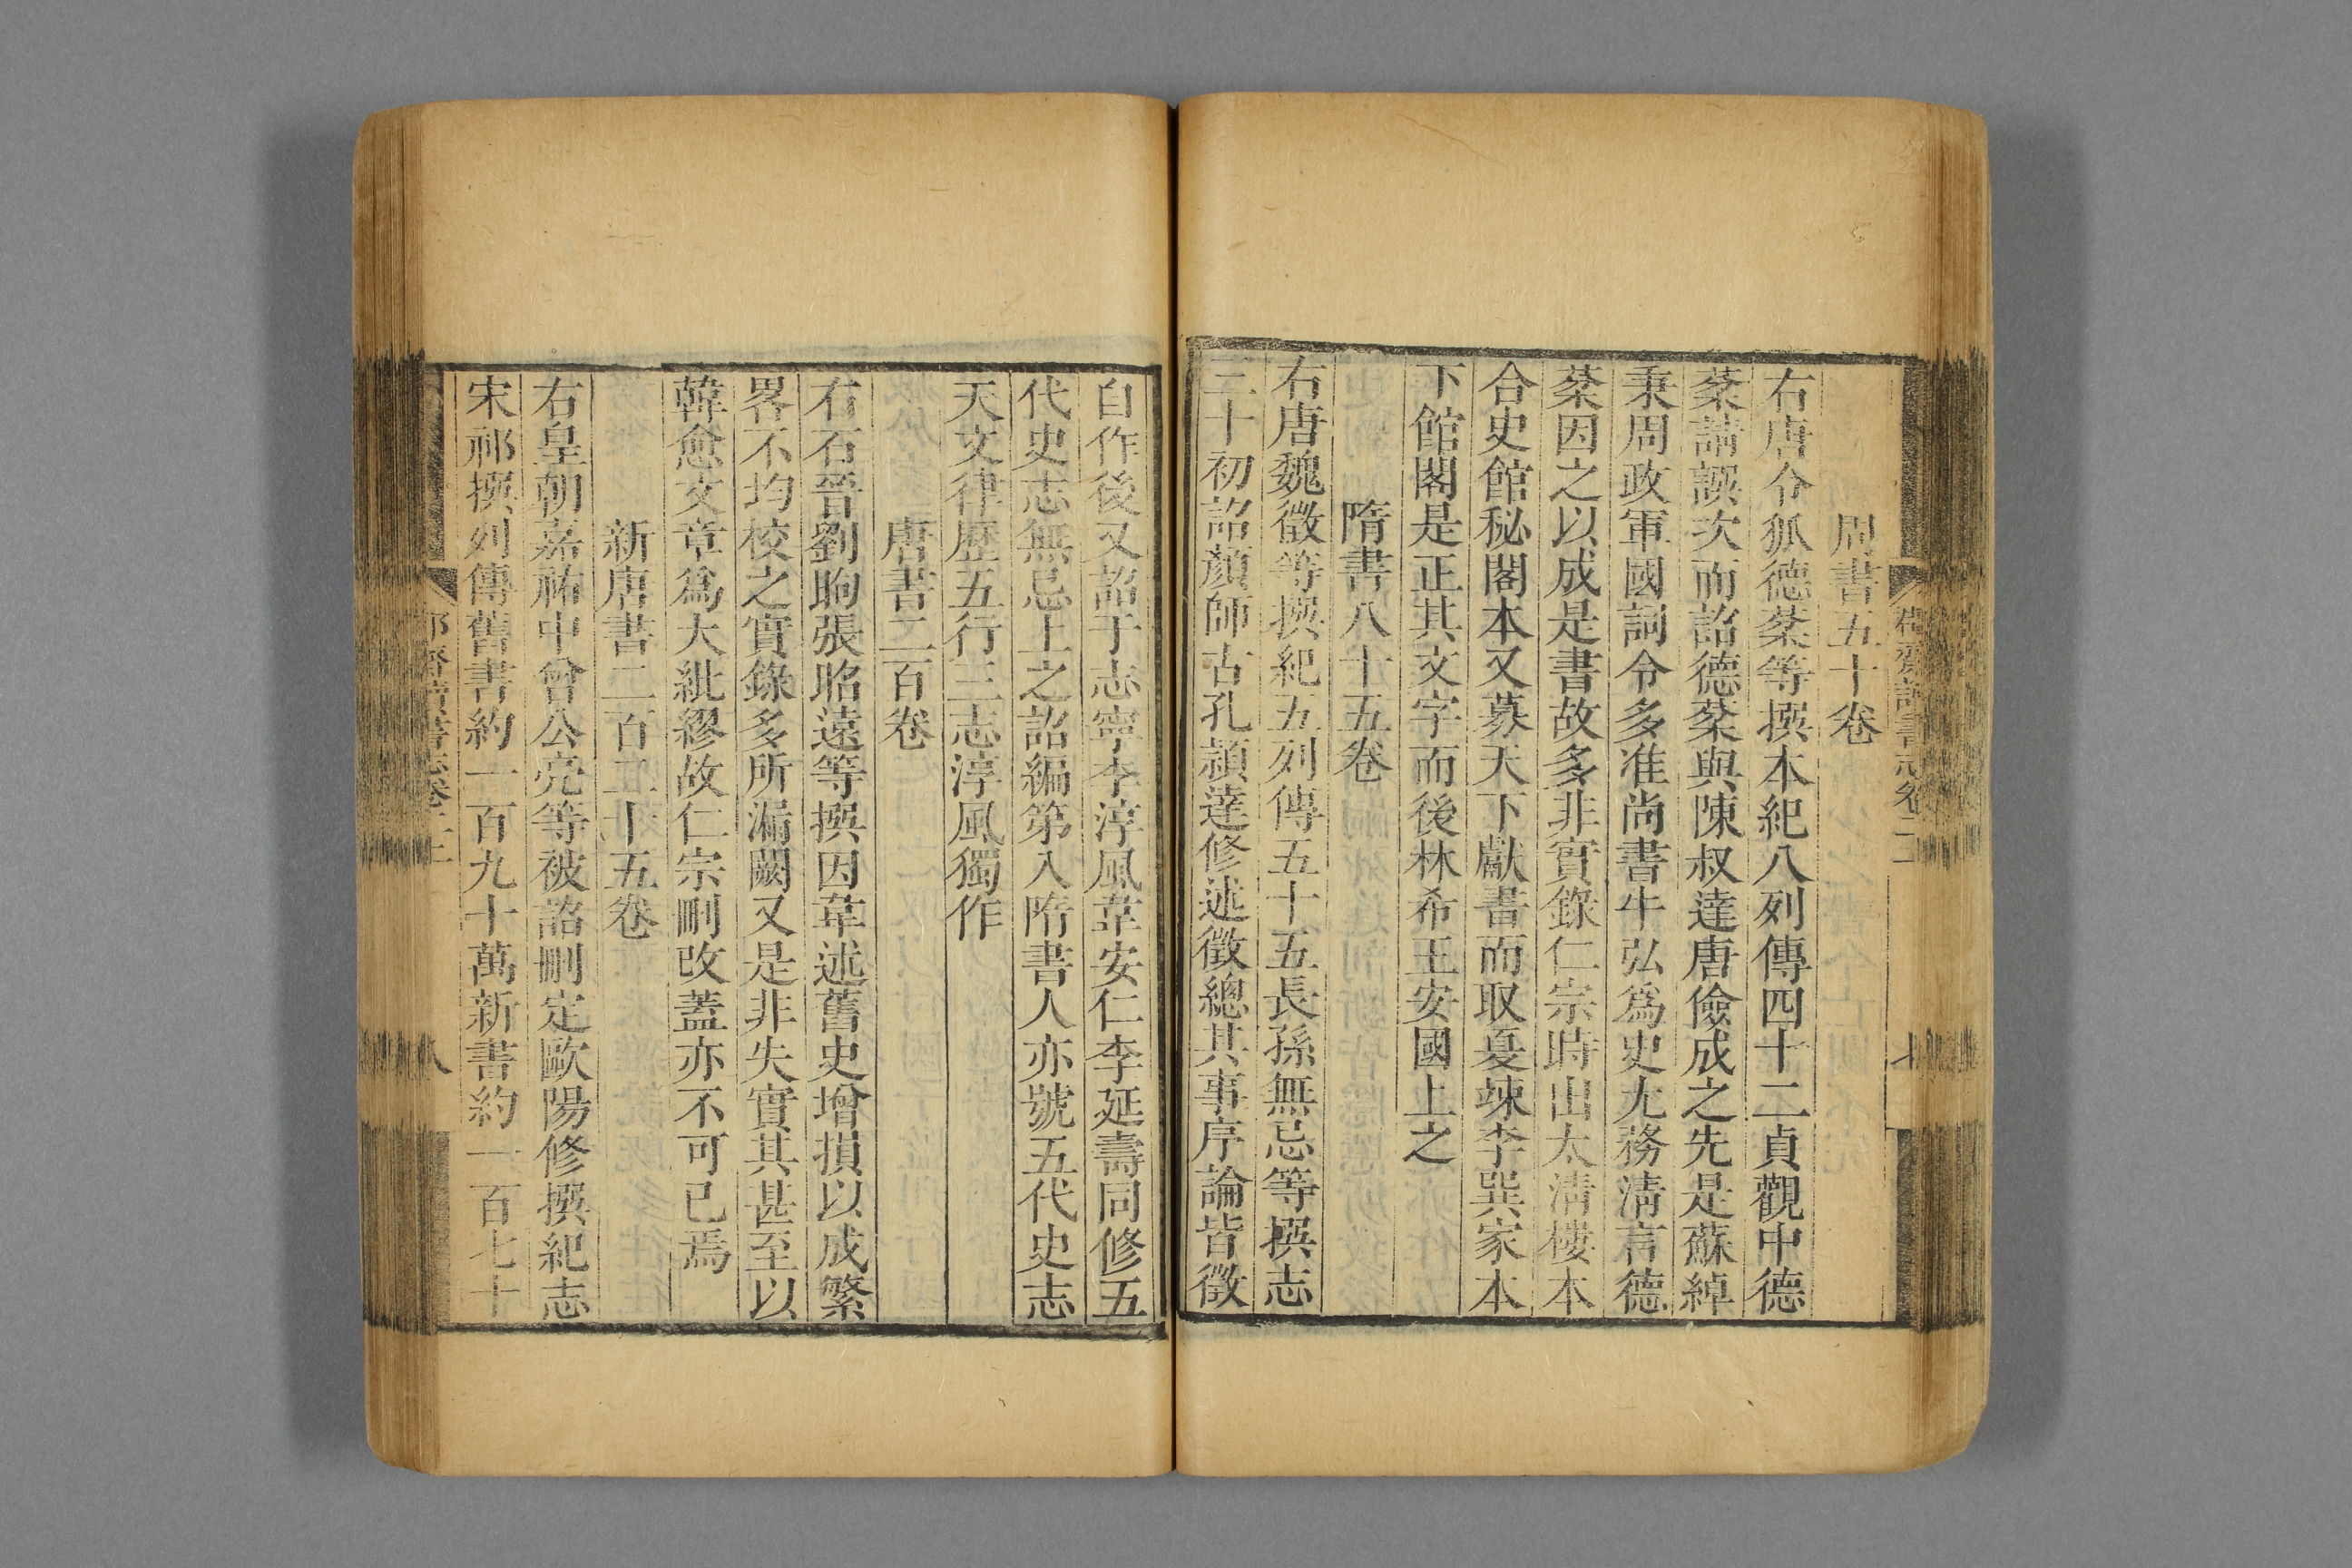 周書五十卷
右唐令狐德棻等撰本紀八列傳四十二貞觀中德
棻請譔次而詔德棻與陳叔達唐儉成之先是蘇綽
秉周政軍國詞令多准尚書牛弘爲史尤務淸言德
棻因之以成是書故多非實錄仁宗時出太淸樓本
合史館秘閣本又募天下獻書而取夏竦李巽家本
下館閣是正其文字而後林希王安國上之
隋書八十五卷
右唐魏徵等撰紀五列傳五十五長孫無忌等撰志
三十初詔顏師古孔穎達修述徵總其事序論皆徵
自作後又詔于志寧李淳風韋安仁李延壽同修五
代史志無忌上之詔編第入隋書人亦號五代史志
天文律歷五行三志淳風獨作
唐書二百卷
右石晉劉昫張昭遠等撰因韋述舊史增損以成繁
畧不均校之實錄多所漏闕又是非失實其甚至以
韓愈文章爲大紕繆故仁宗刪改蓋亦不可已焉
新唐書二百二十五卷
右皇朝嘉祐中曾公亮等被詔刪定歐陽修撰紀志
宋祁撰列傳舊書約一百九十萬新書約一百七十
八